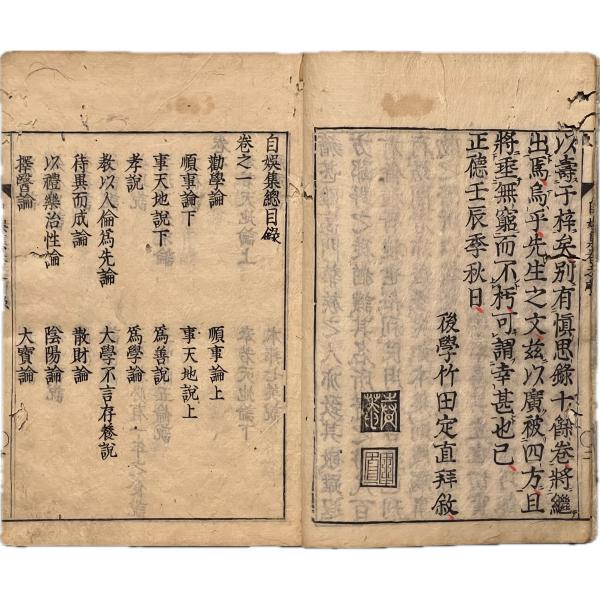 以壽于梓矣別有愼思錄十餘卷將繼
出焉烏乎先生之文茲以廣被四方且
將垂無窮而不朽可謂幸甚也已
正德壬辰季秋日
後學竹田定直拜敘
自娛集總目錄
卷之一
勸學論 順事論上
順事論下 事天地說上
事天地說下 爲善說
孝說 爲學論
教以人倫爲先論 大學不言存養說
待異而成論 散財論
以禮樂治性論 陰陽論
擇醫論 大寶論